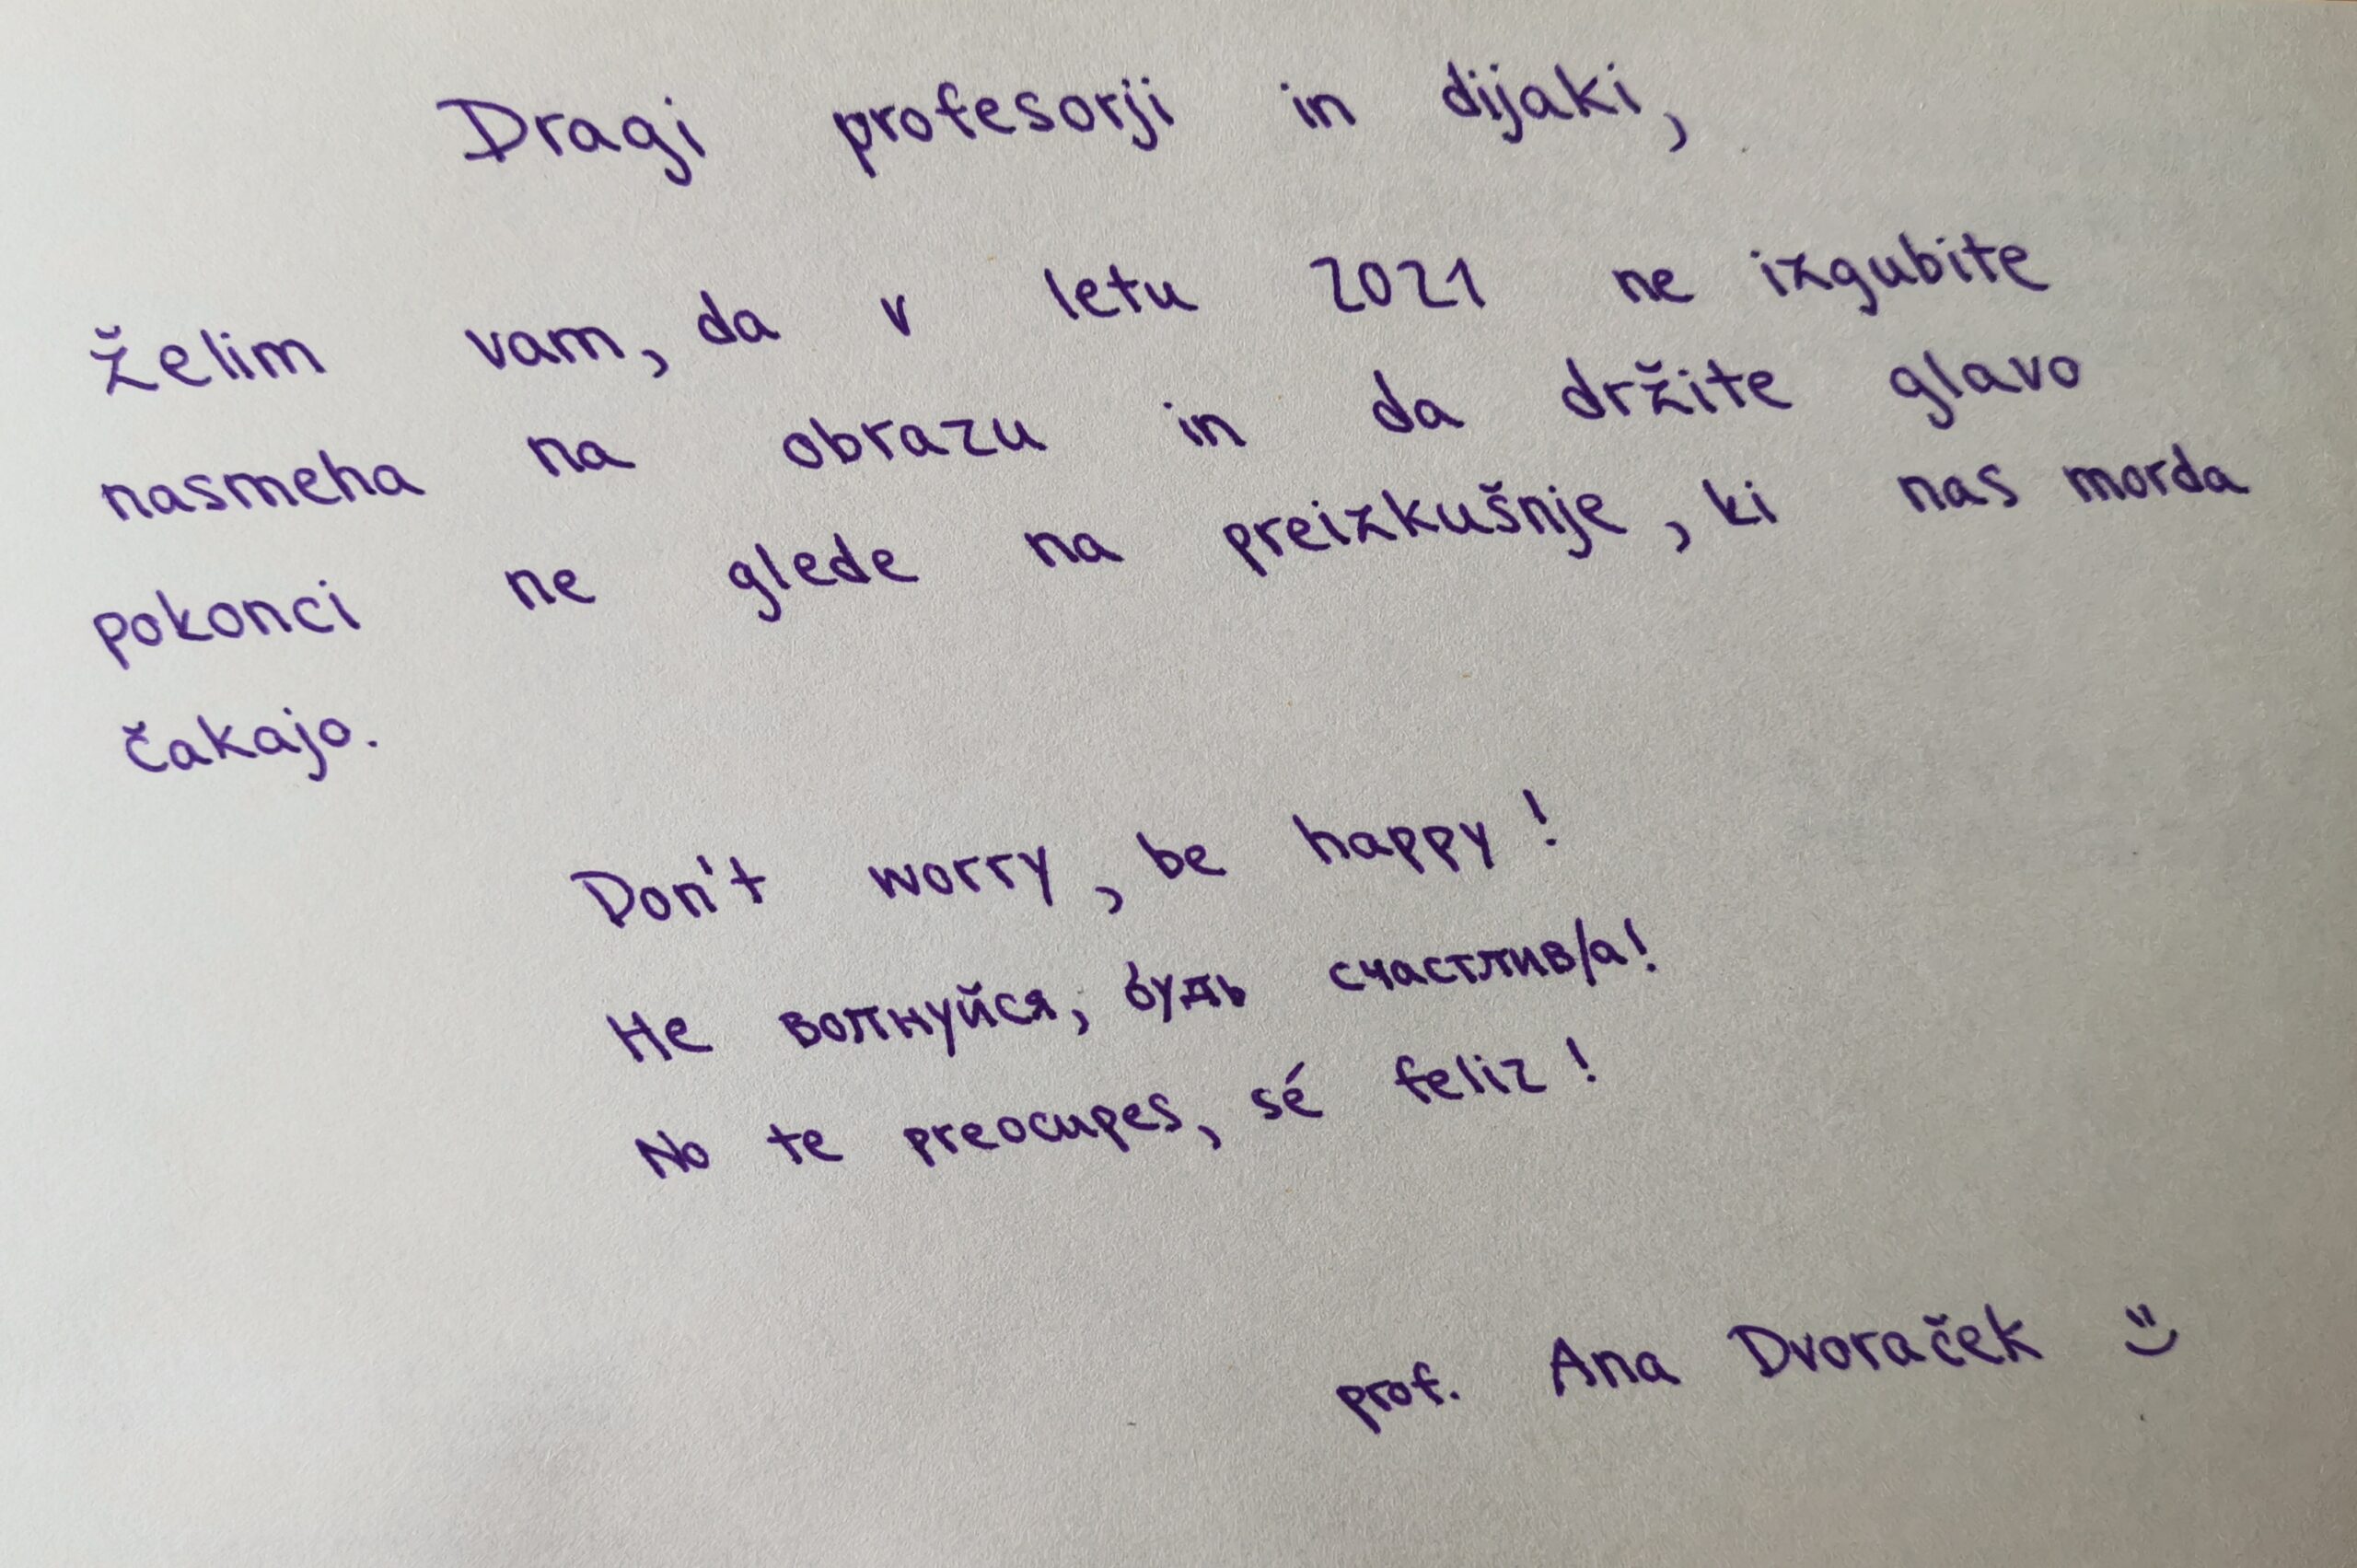 Dragi profesorji in dijaki,
želim vam, da v letu 2021 ne izgubite
nasmeha na obrazu in da držite glavo
pokonci ne glede na preizkušnje, ki nas morda
čakajo.
Don't worry, be happy!
Не волнуйся, будь счастлив/а!
No te preocupes, sé feliz!
prof. Ana Dvoraček